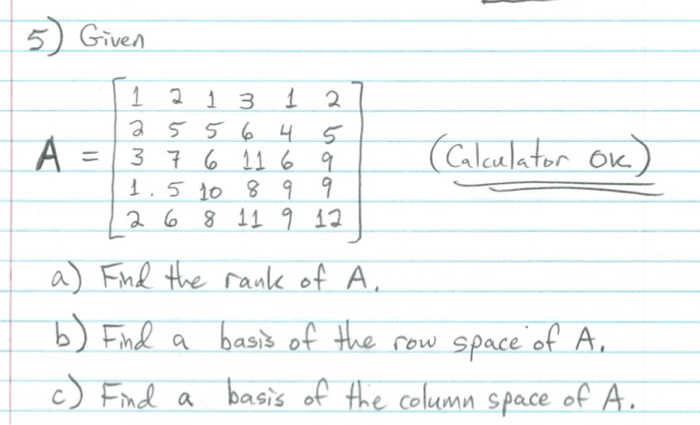 5) Given
1 2 1 3 1 2
2 5 5 6 4 5
A = 3 7 6 11 6 9 (Calculator OK)
1 . 5 10 8 9 9
2 6 8 11 9 12
a) Find the rank of A.
b) Find a basis of the row space of A.
c) Find a basis of the column space of A.